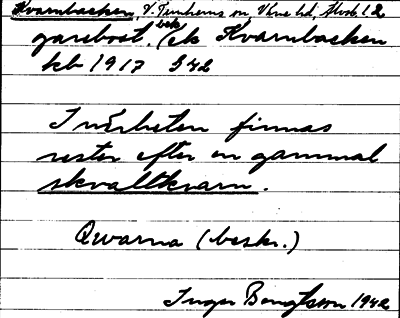 Kvarnbacken, V. Tunhems sn, Väne hd, Älvsb. l. R
gårebost. (ek Kvarnbacken
kb 1917 S 42
I närheten finnas
rester efter en gammal
skvaltkvarn.
Qwarna (beskr.)
Inger Bengtsson 1942